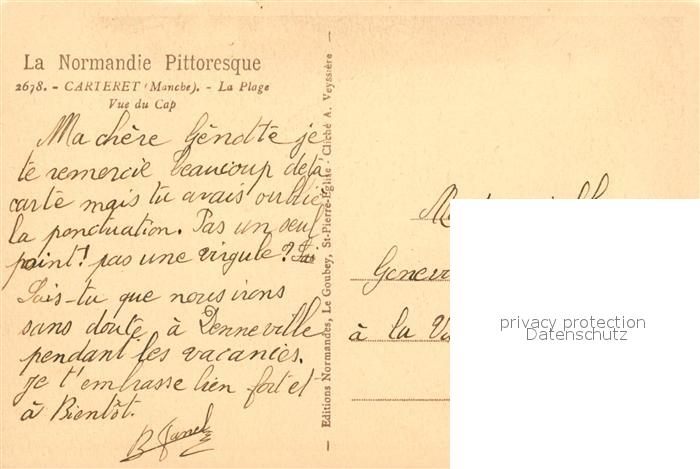 La Normandie Pittoresque
2678. - CARTERET (Manche). - La Plage
Vue du Cap
Ma chère Génotte je
te remercie beaucoup de ta
carte mais tu avais oublié
la ponctuation. Pas un seul
point! pas une virgule?
Sais-tu que nous irons
sans doute à Denneville
pendant les vacances.
Je t'embrasse bien fort et
à Bientôt.
— Editions Normandes, Le Goubey, St-Pierre-Eglise - Cliché A. Veyssière —
à la
privacy protection
Datenschutz